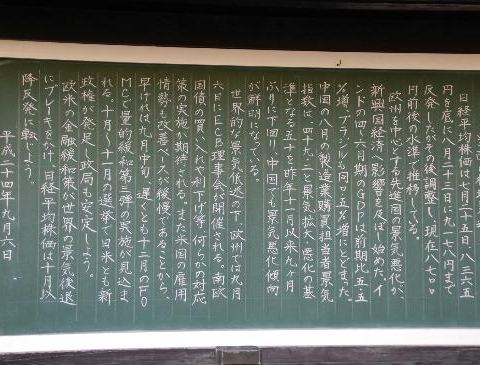 日経平均株価は七月二十五日、八三六五
円を底に八月二十三日に九一七八円まで
反発したがその後調整し、現在八七〇〇
円前後の水準で推移している。
欧州を中心とする先進国の景気悪化が、
新興国経済へ影響を及ぼし始めた。イ
ンドの四〜六月期のGDPは前期比五・五
%増、ブラジルも同〇・五%増にとどまった。
中国の八月の製造業購買担当者景気
指数は、四十九・二と景気拡大・悪化の基
準となる五十を昨年十一月以来九ヶ月
ぶりに下回り、中国でも景気悪化傾向
が鮮明になっている。
世界的な景気後退の下、欧州では九月
六日にECB理事会が開催される。南欧
国債の買い入れや利下げ等、何らかの対応
策の実施が期待される。また米国の雇用
情勢も改善ペースが緩慢であることから、
早ければ九月中旬、遅くとも十二月のFO
MCで量的緩和第三弾の実施が見込ま
れる。十月〜十一月の選挙で日米とも新
政権が発足し政局も安定しよう。
欧米の金融緩和策が世界の景気後退
にブレーキをかけ、日経平均株価は十月以
降反発に転じよう。
平成二十四年九月六日